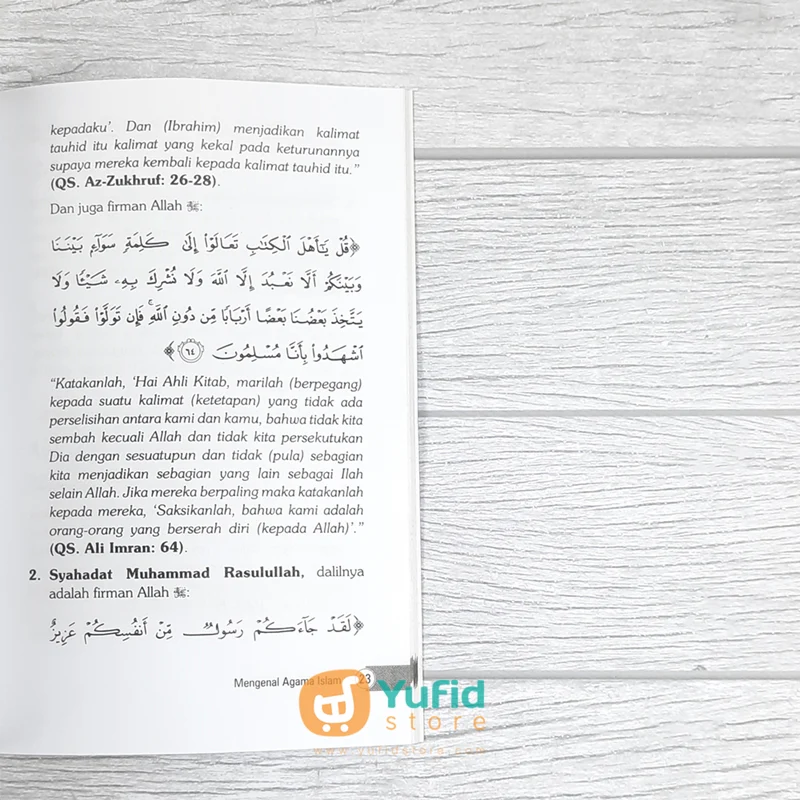 kepadaku'. Dan (Ibrahim) menjadikan kalimat
tauhid itu kalimat yang kekal pada keturunannya
supaya mereka kembali kepada kalimat tauhid itu."
(QS. Az-Zukhruf: 26-28).
Dan juga firman Allah ﷻ:
﴿قُلْ يَٰٓأَهْلَ ٱلْكِتَٰبِ تَعَالَوْا۟ إِلَىٰ كَلِمَةٍ سَوَآءٍۭ بَيْنَنَا
وَبَيْنَكُمْ أَلَّا نَعْبُدَ إِلَّا ٱللَّهَ وَلَا نُشْرِكَ بِهِۦ شَيْـًٔا وَلَا
يَتَّخِذَ بَعْضُنَا بَعْضًا أَرْبَابًا مِّن دُونِ ٱللَّهِ ۚ فَإِن تَوَلَّوْا۟ فَقُولُوا۟
ٱشْهَدُوا۟ بِأَنَّا مُسْلِمُونَ ٦٤﴾
"Katakanlah, 'Hai Ahli Kitab, marilah (berpegang)
kepada suatu kalimat (ketetapan) yang tidak ada
perselisihan antara kami dan kamu, bahwa tidak kita
sembah kecuali Allah dan tidak kita persekutukan
Dia dengan sesuatupun dan tidak (pula) sebagian
kita menjadikan sebagian yang lain sebagai Ilah
selain Allah. Jika mereka berpaling maka katakanlah
kepada mereka, 'Saksikanlah, bahwa kami adalah
orang-orang yang berserah diri (kepada Allah)'."
(QS. Ali Imran: 64).
2. Syahadat Muhammad Rasulullah, dalilnya
adalah firman Allah ﷻ:
﴿لَقَدْ جَآءَكُمْ رَسُولٌ مِّنْ أَنفُسِكُمْ عَزِيزٌ
Mengenal Agama Islam 23
Yufid
store
www.yufidstore.com